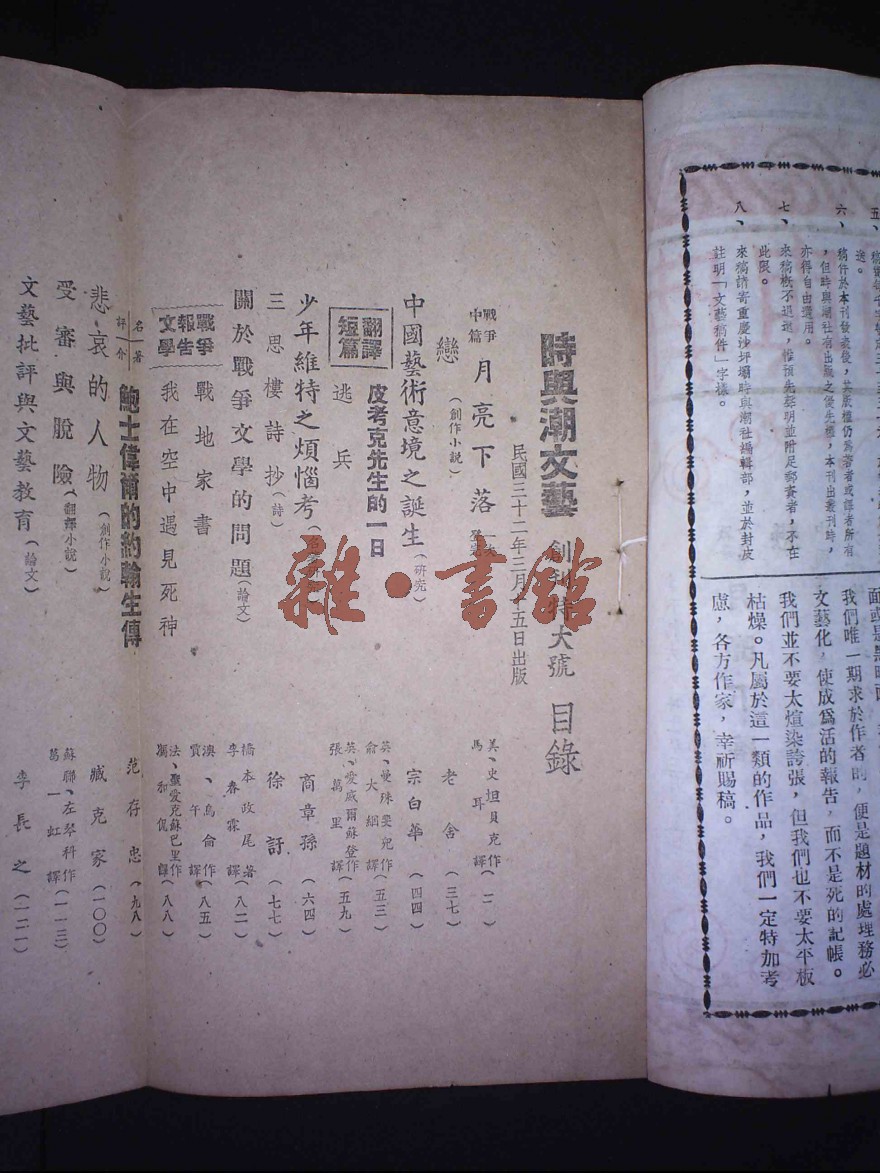 六、稿件於本刊發表後，其版權仍爲著者或譯者所有
，但時與潮社有出版之優先權，本刊出叢刊時，
亦得自由選用。
七、來稿概不退還，惟預先聲明並附足郵資者，不在
此限。
八、來稿請寄重慶沙坪壩時與潮社編輯部，並於封皮
註明「文藝稿件」字樣。
我們唯一期求於作者的，便是題材的處理務必
文藝化，使成爲活的報告，而不是死的記帳。
我們並不要太煊染誇張，但我們也不要太平板
枯燥。凡屬於這一類的作品，我們一定特加考
慮，各方作家，幸祈賜稿。
時與潮文藝 創刊特大號 目錄
民國三十二年三月十五日出版
戰爭中篇 月亮下落 美、史坦貝克作 馬耳譯
戀（創作小說） 老舍（三七）
中國藝術意境之誕生（研究） 宗白華（四四）
翻譯短篇
皮考克先生的一日 英、曼殊斐兒作 俞大絪譯（五三）
逃兵 英、愛威爾蘇登作 張萬里譯（五九）
少年維特之煩惱考 商章孫（六四）
三思樓詩抄（詩） 徐訏（七七）
關於戰爭文學的問題（論文） 橋本政尾著 李春霖譯（八二）
戰爭報告文學
戰地家書 澳、烏侖作 賈午譯（八五）
我在空中遇見死神 法、聚愛克蘇巴里作 獨和侃譯（八八）
名著評介 鮑士偉爾的約翰生傳 范存忠（九八）
悲哀的人物（創作小說） 臧克家（一〇〇）
受審與脫險（翻譯小說） 蘇聯、左琴科作 葛一虹譯（一一三）
文藝批評與文藝教育（論文） 李長之（一二一）
雜·書館